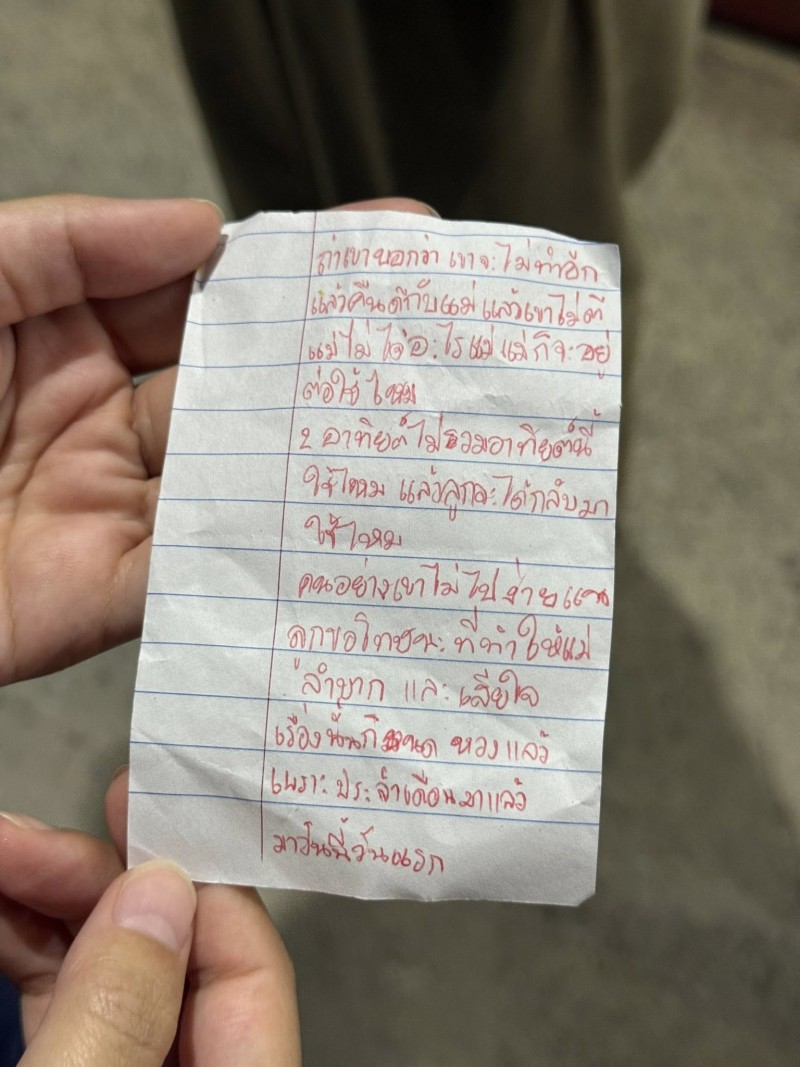 ถ้าเขาบอกว่า เขาจะไม่ทำอีก
แล้วคืนดีกับแม่ แล้วเขาไม่ตี
แม่ไม่ได้อะไรแม่ แม่ก็จะอยู่
ต่อใช้ไหม
2 อาทิยต์ไม่รวมอาทิยต์นี้
ใช้ไหม แล้วลูกจะได้กลับมา
ใช้ไหม
คนอย่างเขาไม่ไปง่าย
ลูกขอโทษนะ ที่ทำให้แม่
ลำบาก และ เสียใจ
เรื่องนั้นก็หมด หวงแล้ว
เพราะ ประจำเดือนมาแล้ว
มาวันนี้วันแรก